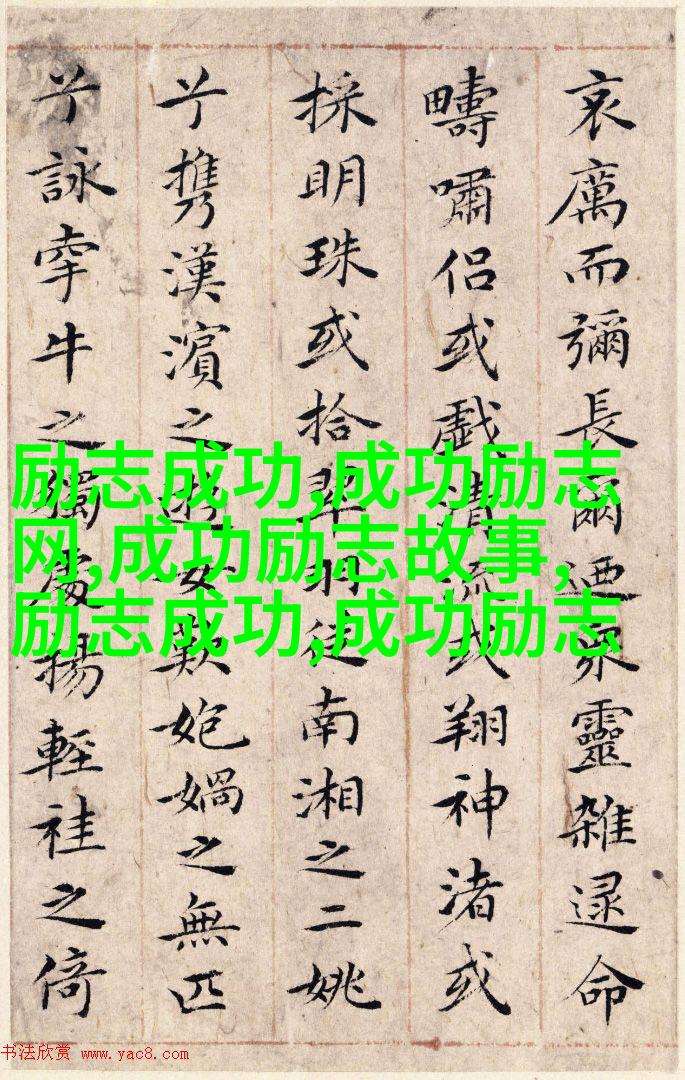 哀厲而彌長爾迺眾靈雜遝命
疇嘯侶或戲清流或翔神渚或
採明珠或拾翠羽從南湘之二姚
兮携漢濱之遊女歎媧之無匹
兮詠牽牛之獨處揚輕袿之倚
励志成功,成功励志
网,成功励志故事,
励志成功,成功励志
书法欣赏 www.yac8.com